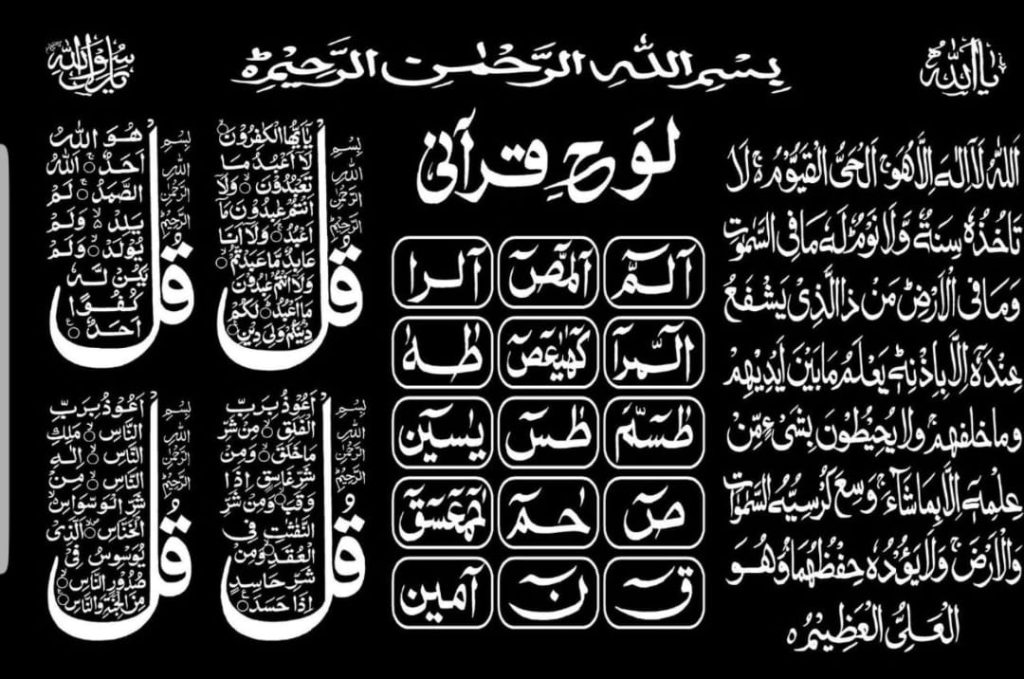 یااللہ
بِسْمِ اللهِ الرَّحْمٰنِ الرَّحِیْمِ
یارسول اللہ
اَللّٰهُ لَآ اِلٰهَ اِلَّا هُوَ ۚ اَلْحَیُّ الْقَیُّوْمُ ۚ لَا
تَاْخُذُهٗ سِنَةٌ وَّلَا نَوْمٌ ؕ لَهٗ مَا فِی السَّمٰوٰتِ
وَمَا فِی الْاَرْضِ ؕ مَنْ ذَا الَّذِیْ یَشْفَعُ
عِنْدَهٗۤ اِلَّا بِاِذْنِهٖ ؕ یَعْلَمُ مَا بَیْنَ اَیْدِیْهِمْ
وما خلفهم ۚ ولا یُحِیْطُوْنَ بِشَیْءٍ مِّنْ
عِلْمِهٖۤ اِلَّا بِمَا شَآءَ ۚ وَسِعَ كُرْسِیُّهُ السَّمٰوٰتِ
وَالْاَرْضَ ۚ وَلَا یَـُٔوْدُهٗ حِفْظُهُمَا وَهُوَ
الْعَلِیُّ الْعَظِیْمُ
لَوحِ قرآنی
آلٓمّٓ
آلٓمّٓصٓ
آلٓرا
آلٓمّٓرا
كٓهٰیٰعٓصٓ
طٰهٰ
طٰسٓمّٓ
طٰسٓ
یٰسٓیٓن
صٓ
حٰمٓ
حٰمٓعٓسٓقٓ
قٓ
نٓ
آمین
بِسْمِ اللهِ الرَّحْمٰنِ الرَّحِیْمِ
قُلْ
یٰۤاَیُّهَا الْكٰفِرُوْنَ
لَاۤ اَعْبُدُ مَا
تَعْبُدُوْنَ وَلَاۤ
اَنْتُمْ عٰبِدُوْنَ مَاۤ
اَعْبُدُ وَلَاۤ اَنَا
عَابِدٌ مَّا عَبَدْتُّمْ
وَلَاۤ اَنْتُمْ عٰبِدُوْنَ
مَاۤ اَعْبُدُ لَكُمْ
دِیْنُكُمْ وَلِیَ دِیْنِ
بِسْمِ اللهِ الرَّحْمٰنِ الرَّحِیْمِ
قُلْ
هُوَ اللهُ
اَحَدٌ اَللهُ
الصَّمَدُ لَمْ
یَلِدْ وَلَمْ
یُوْلَدْ وَلَمْ
یَكُنْ لَّهٗ
كُفُوًا
اَحَدٌ
بِسْمِ اللهِ الرَّحْمٰنِ الرَّحِیْمِ
قُلْ
اَعُوْذُ بِرَبِّ
الْفَلَقِ مِنْ شَرِّ
مَا خَلَقَ وَمِنْ
شَرِّ غَاسِقٍ اِذَا
وَقَبَ وَمِنْ شَرِّ
النَّفّٰثٰتِ فِی
الْعُقَدِ وَمِنْ
شَرِّ حَاسِدٍ
اِذَا حَسَدَ
بِسْمِ اللهِ الرَّحْمٰنِ الرَّحِیْمِ
قُلْ
اَعُوْذُ بِرَبِّ
النَّاسِ مَلِكِ
النَّاسِ اِلٰهِ
النَّاسِ مِنْ
شَرِّ الْوَسْوَاسِ
الْخَنَّاسِ الَّذِیْ
یُوَسْوِسُ فِیْ
صُدُوْرِ النَّاسِ
مِنَ الْجِنَّةِ وَالنَّاسِ